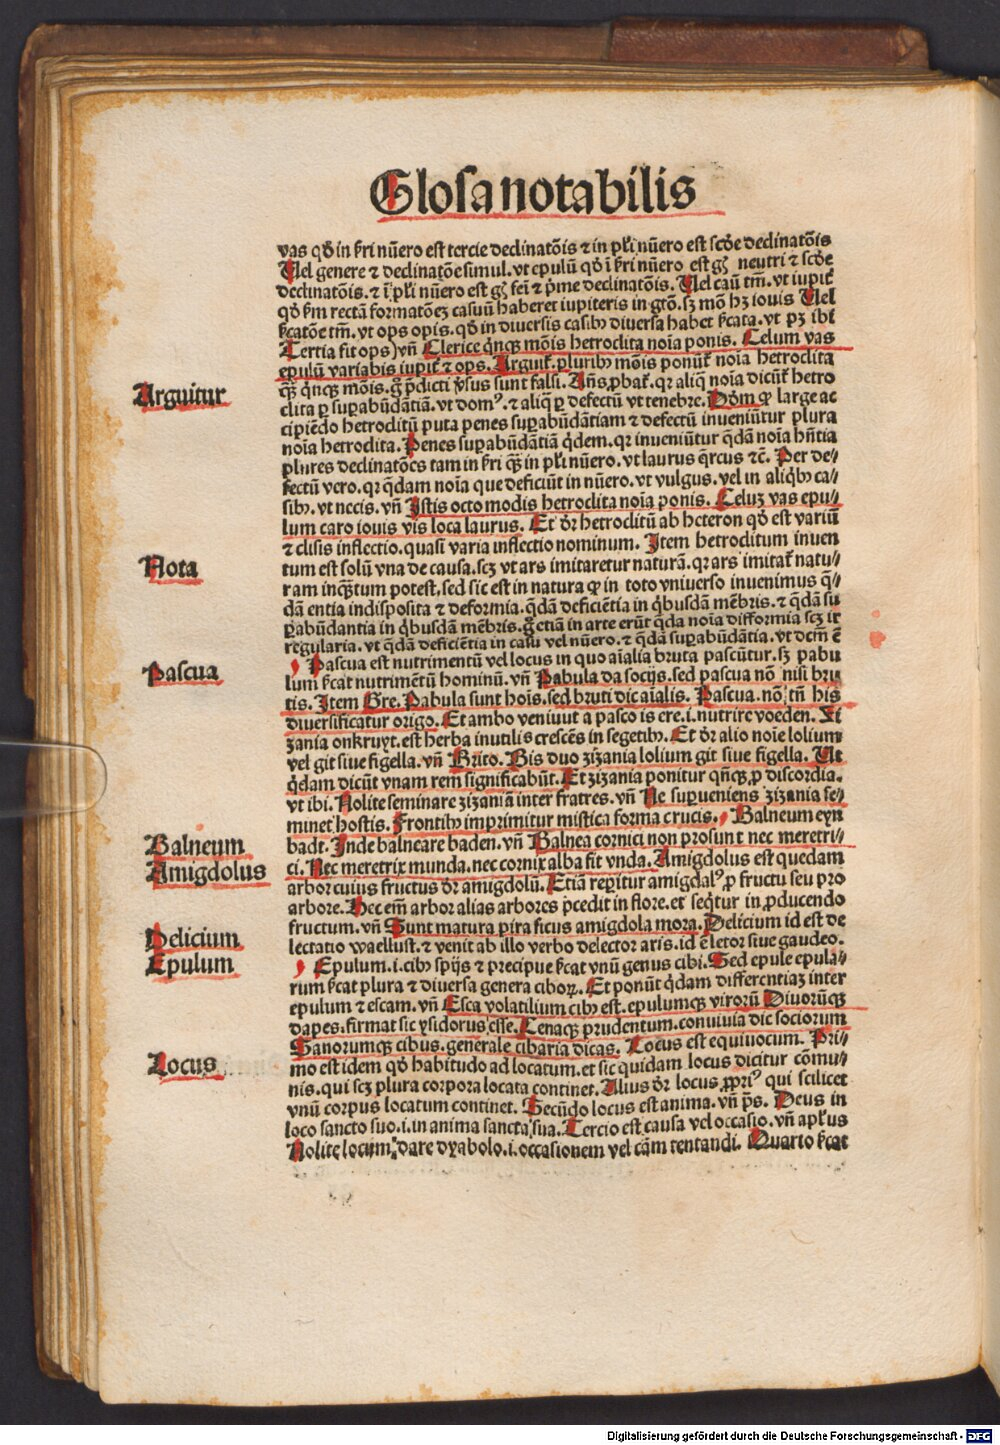 Glosa notabilis
vas qđ in ſɫri nũero est tercie declinatõis ⁊ in pɫri nũero est scđe declinatõis
Uel genere ⁊ declinatõe simul. vt epulũ qđ ī ſɫri nũero est gñ neutri ⁊ scđe
declinatõis. ⁊ ī pɫri nũero est gñ femĩ ⁊ pͥme declinatõis. Uel caũ tm̃. vt iupit̃
qđ ẜm rectã formatõeꝫ casuũ haberet iupiteris in gtõ. sꝫ mõ hꝫ iouis Uel
ẜcatõe tm̃. vt ops opis. qđ in diuersis casibꝰ diuersa habet ẜcata. vt pꝫ ibi
Tertia fit ops) vñ Clerice qͥnqꝫ mõis hetroclita noĩa ponis. Celum vas
epulũ variabis iupit̃ ⁊ ops. Arguit̃. pluribꝰ mõis ponũt̃ noĩa hetroclita
qͣꝫ qͥnqꝫ mõis. gͦ p̃dicti ṽsus sunt falsi. Añs ꝓbat̃. qꝛ aliq̃ noĩa dicũt̃ hetro
Arguitur
clita ꝑ suꝑabũdãtiã. vt domꝰ. ⁊ aliq̃ ꝑ defectũ vt tenebre. Dõm ꝙ large ac
cipiẽdo hetroclitũ puta penes suꝑabũdãtiam ⁊ defectũ inueniũtur plura
noĩa hetroclita. Penes suꝑabũdãtiã qͥdem. qꝛ inueniũtur q̃dã noĩa hñtia
plures declinatões tam in ſɫri qͣꝫ in pɫri nũero. vt laurus q̃rcus ⁊c̃. Per de⸗
fectũ vero. qꝛ q̃dam noĩa que deficiũt in nũero. vt vulgus. vel in aliqͥbꝰ ca⸗
sibꝰ. vt necis. vñ Istis octo modis hetroclita noĩa ponis. Celuꝫ vas epu⸗
lum caro iouis vis loca laurus. Et dr̃ hetroclitũ ab heteron qđ est variũ
⁊ clisis inflectio. quasi varia inflectio nominum. Item hetroclitum inuen
Nota
tum est solũ vna de causa. scꝫ vt ars imitaretur naturã. qꝛ ars imitat̃ natu⸗
ram inqͣꝫtum potest. sed sic est in natura ꝙ in toto vniuerso inuenimus q̃⸗
dã entia indisposita ⁊ deformia. q̃dã deficiẽtia in qͥbusdã mẽbris. ⁊ q̃dã su
ꝑabũdantia in qͥbusdã mẽbris. gͦ etiã in arte erũt q̃da noĩa difformia scꝫ ir
regularia. vt q̃dã deficiẽtia in casu vel nũero. ⁊ q̃dã suꝑabũdãtia. vt dcm̃ ẽ
Pascua
Pascua est nutrimentũ vel locus in quo aĩalia bruta pascũtur. sꝫ pabu
lum ẜcat nutrimẽtũ hominũ. vñ Pabula da socijs. sed pascua nõ nisi bru
tis. Item Gre. Pabula sunt hoĩs. sed bruti dic aĩalis. Pascua. nõ tñ his
diuersificatur origo. Et ambo veniuut a pasco is ere. i. nutrire voeden. Zi
zania onkruyt. est herba inutilis crescẽs in segetibꝰ. Et dr̃ alio noĩe lolium
vel git siue figella. vñ Brito. Bis duo zizania lolium git siue figella. Ut
qͥdam dicũt vnam rem significabũt. Et zizania ponitur qñqꝫ ꝓ discordia.
vt ibi. Nolite seminare zizaniã inter fratres. vñ Ne suꝑueniens zizania se⸗
minet hostis. Frontibꝰ imprimitur mistica forma crucis. Balneum eyn
Balneum
badt. Inde balneare baden. vñ Balnea cornici non prosunt nec meretri⸗
Amigdolus
ci. Nec meretrix munda. nec cornix alba fit vnda. Amigdolus est quedam
arbor cuius fructus dr̃ amigdolũ. Etiã reꝑitur amigdalꝰ ꝓ fructu seu pro
arbore. Hec em̃ arbor alias arbores p̃cedit in flore. et seqͥtur in ꝓducendo
fructum. vñ Sunt matura pira ficus amigdola mora. Delicium id est de
Delicium
lectatio waellust. ⁊ venit ab illo verbo delector aris. id ẽ letor siue gaudeo.
Epulum
Epulum. i. cibꝰ spĩjs ⁊ precipue ẜcat vnũ genus cibi. Sed epule epula⸗
rum ẜcat plura ⁊ diuersa genera ciboꝝ. Et ponũt qͥdam differentiaꝫ inter
epulum ⁊ escam. vñ Esca volatilium cibꝰ est. epulumqꝫ virorũ Diuorũqꝫ
dapes. firmat sic ysidorus esse. Cenaqꝫ prudentum. conuiuia dic sociorum
Sanorumqꝫ cibus. generale cibaria dicas. Locus est equiuocum. Pri⸗
Locus
mo est idem qđ habitudo ad locatum. et sic quidam locus dicitur cõmu⸗
nis. qui scꝫ plura corpora locata continet. Alius dr̃ locus ꝓpriꝰ qui scilicet
vnũ corpus locatum continet. Secũdo locus est anima. vñ p̃s. Deus in
loco sancto suo. i. in anima sancta sua. Tercio est causa vel occasio. vñ apɫus
Nolite locum dare dyabolo. i. occasionem vel cãm tentandi. Quarto ẜcat
Digitalisierung gefördert durch die Deutsche Forschungsgemeinschaft - DFG